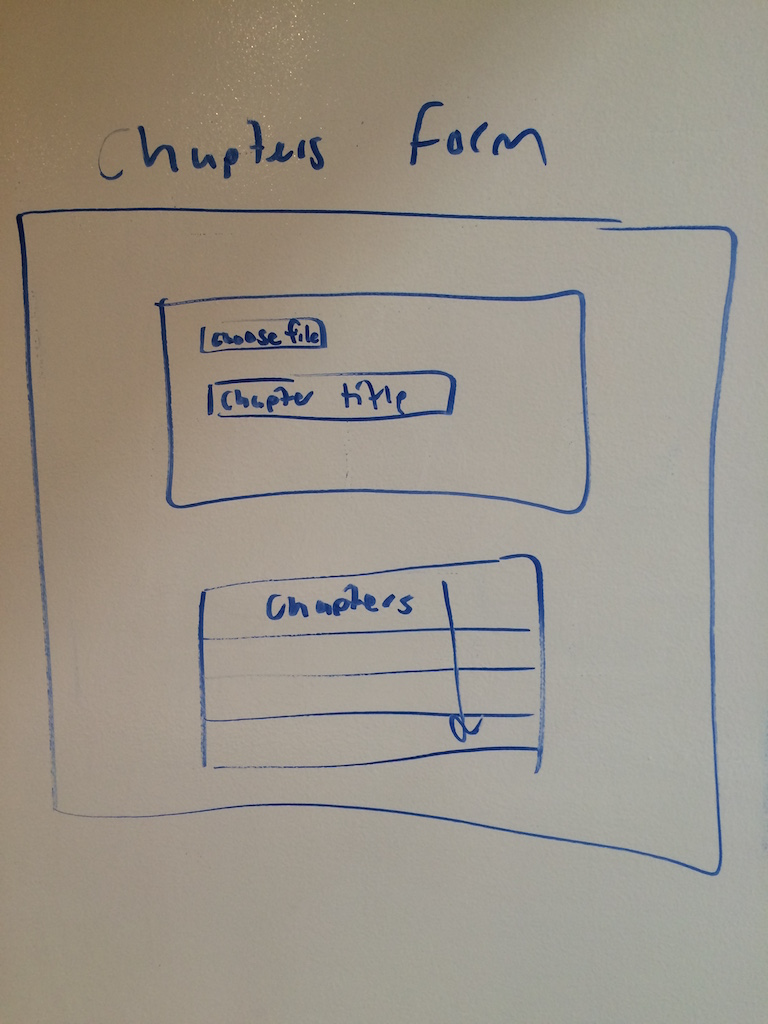 Chapters Form
choose file
Chapter title
Chapters